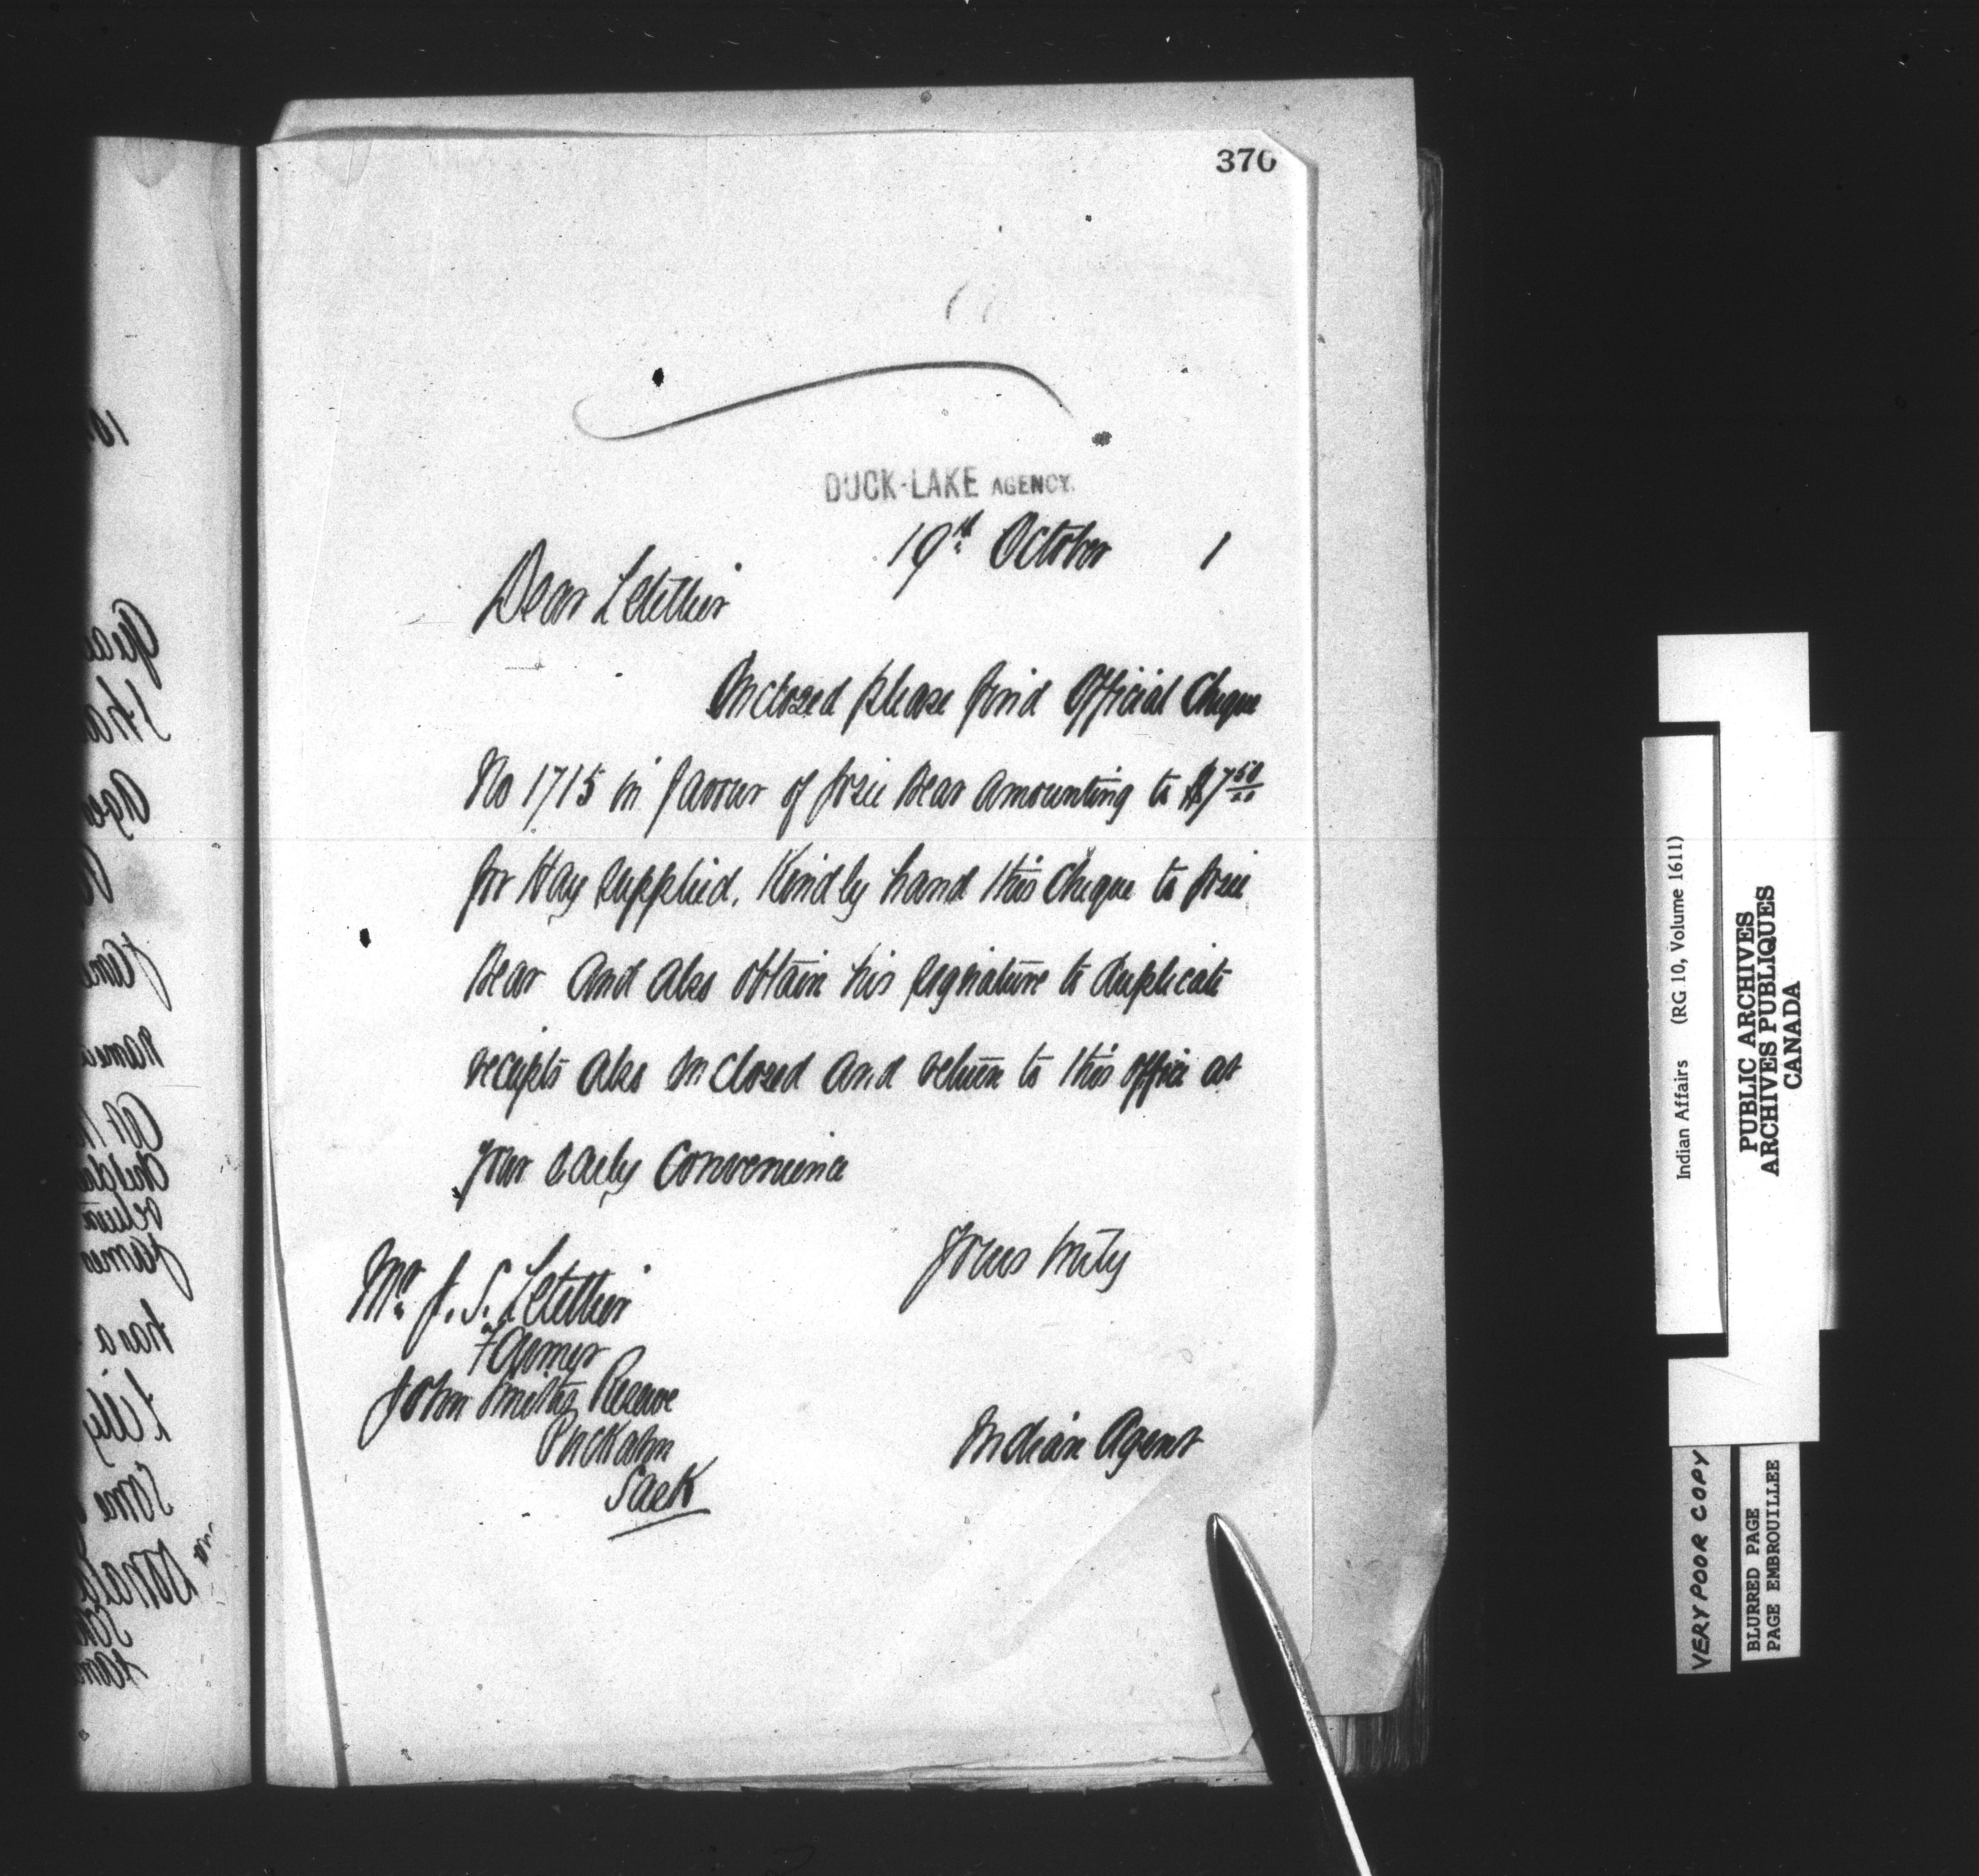 370
DUCK-LAKE AGENCY.
19th October 1
Dear Letellier
Enclosed please find Official Cheque
No 1715 in favour of Josie Bear amounting to $7 50/00
for Hay supplied. Kindly hand this Cheque to Josie
Bear and also obtain his signature to duplicate
receipts also enclosed and return to this office at
your early convenience
Yours truly
Mr J. S. Letellier
Farmer
John Smiths Reserve
Sask
Indian Agent
Indian Affairs (RG 10, Volume 1611)
PUBLIC ARCHIVES
ARCHIVES PUBLIQUES
CANADA
VERY POOR COPY
BLURRED PAGE
PAGE EMBROUILLEE